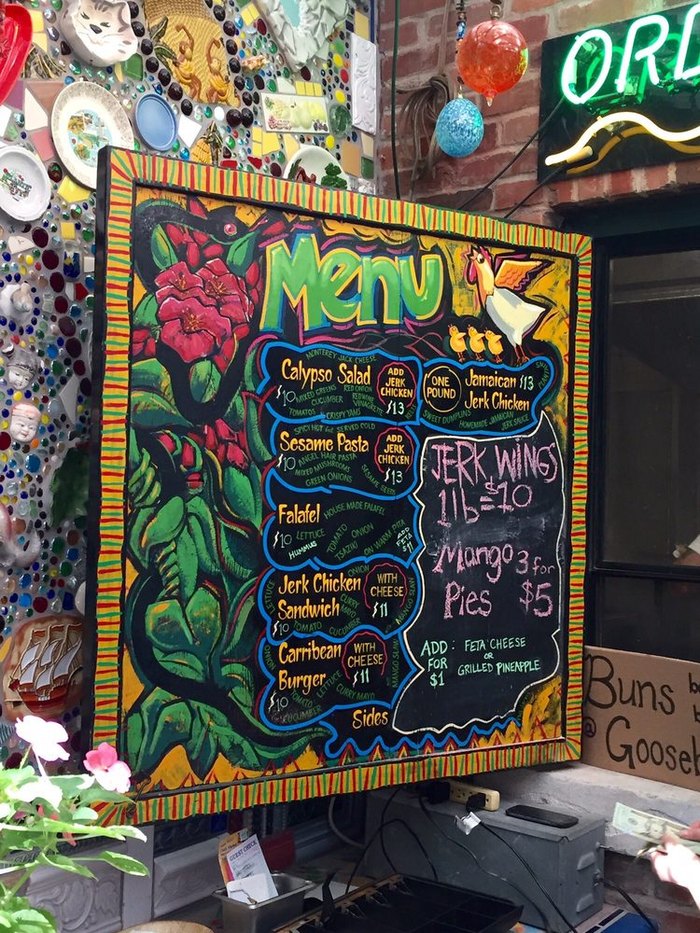 ORD
Menu
MONTEREY JACK CHEESE
Calypso Salad
$10 MIXED GREENS RED ONION
CUCUMBER REDWINE VINAGRETTE
TOMATOS CRISPY YAMS
ADD
JERK
CHICKEN
$13
ONE
POUND
Jamaican $13
Jerk Chicken
SWEET DUMPLINS HOMEMADE JAMAICAN
JERK SAUCE
SPICY HOT SERVED COLD
Sesame Pasta
$10 ANGEL HAIR PASTA
MIXED MUSHROOMS
GREEN ONIONS
SESAME SEEDS
ADD
JERK
CHICKEN
$13
Falafel HOUSE MADE FALAFEL
$10 LETTUCE TOMATO ONION
HUMMUS TSAZIKI ON WARM PITA
ADD
FETA
$11
Jerk Chicken ONION
Sandwich CURRY MAYO
LETTUCE
$10 TOMATO CUCUMBER
MANGO SLAW
WITH
CHEESE
$11
Carribean
Burger
ONION
$10 TOMATO LETTUCE CURRY MAYO
CUCUMBER
MANGO SLAW
WITH
CHEESE
$11
Sides
JERK WINGS
1lb = $10
Mango 3 for
Pies $5
ADD : FETA CHEESE
FOR OR
$1 GRILLED PINEAPPLE
Buns
@ Gooseb
GUEST CHECK